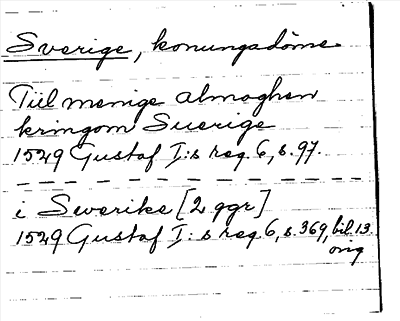 Sverige, konungadöme
Tiil menige almoghen
kringom Suerige
1529 Gustaf I:s reg. 6, s. 97.
i Swerike [2 ggr]
1529 Gustaf I:s reg. 6, s. 369, bil. 13.
orig